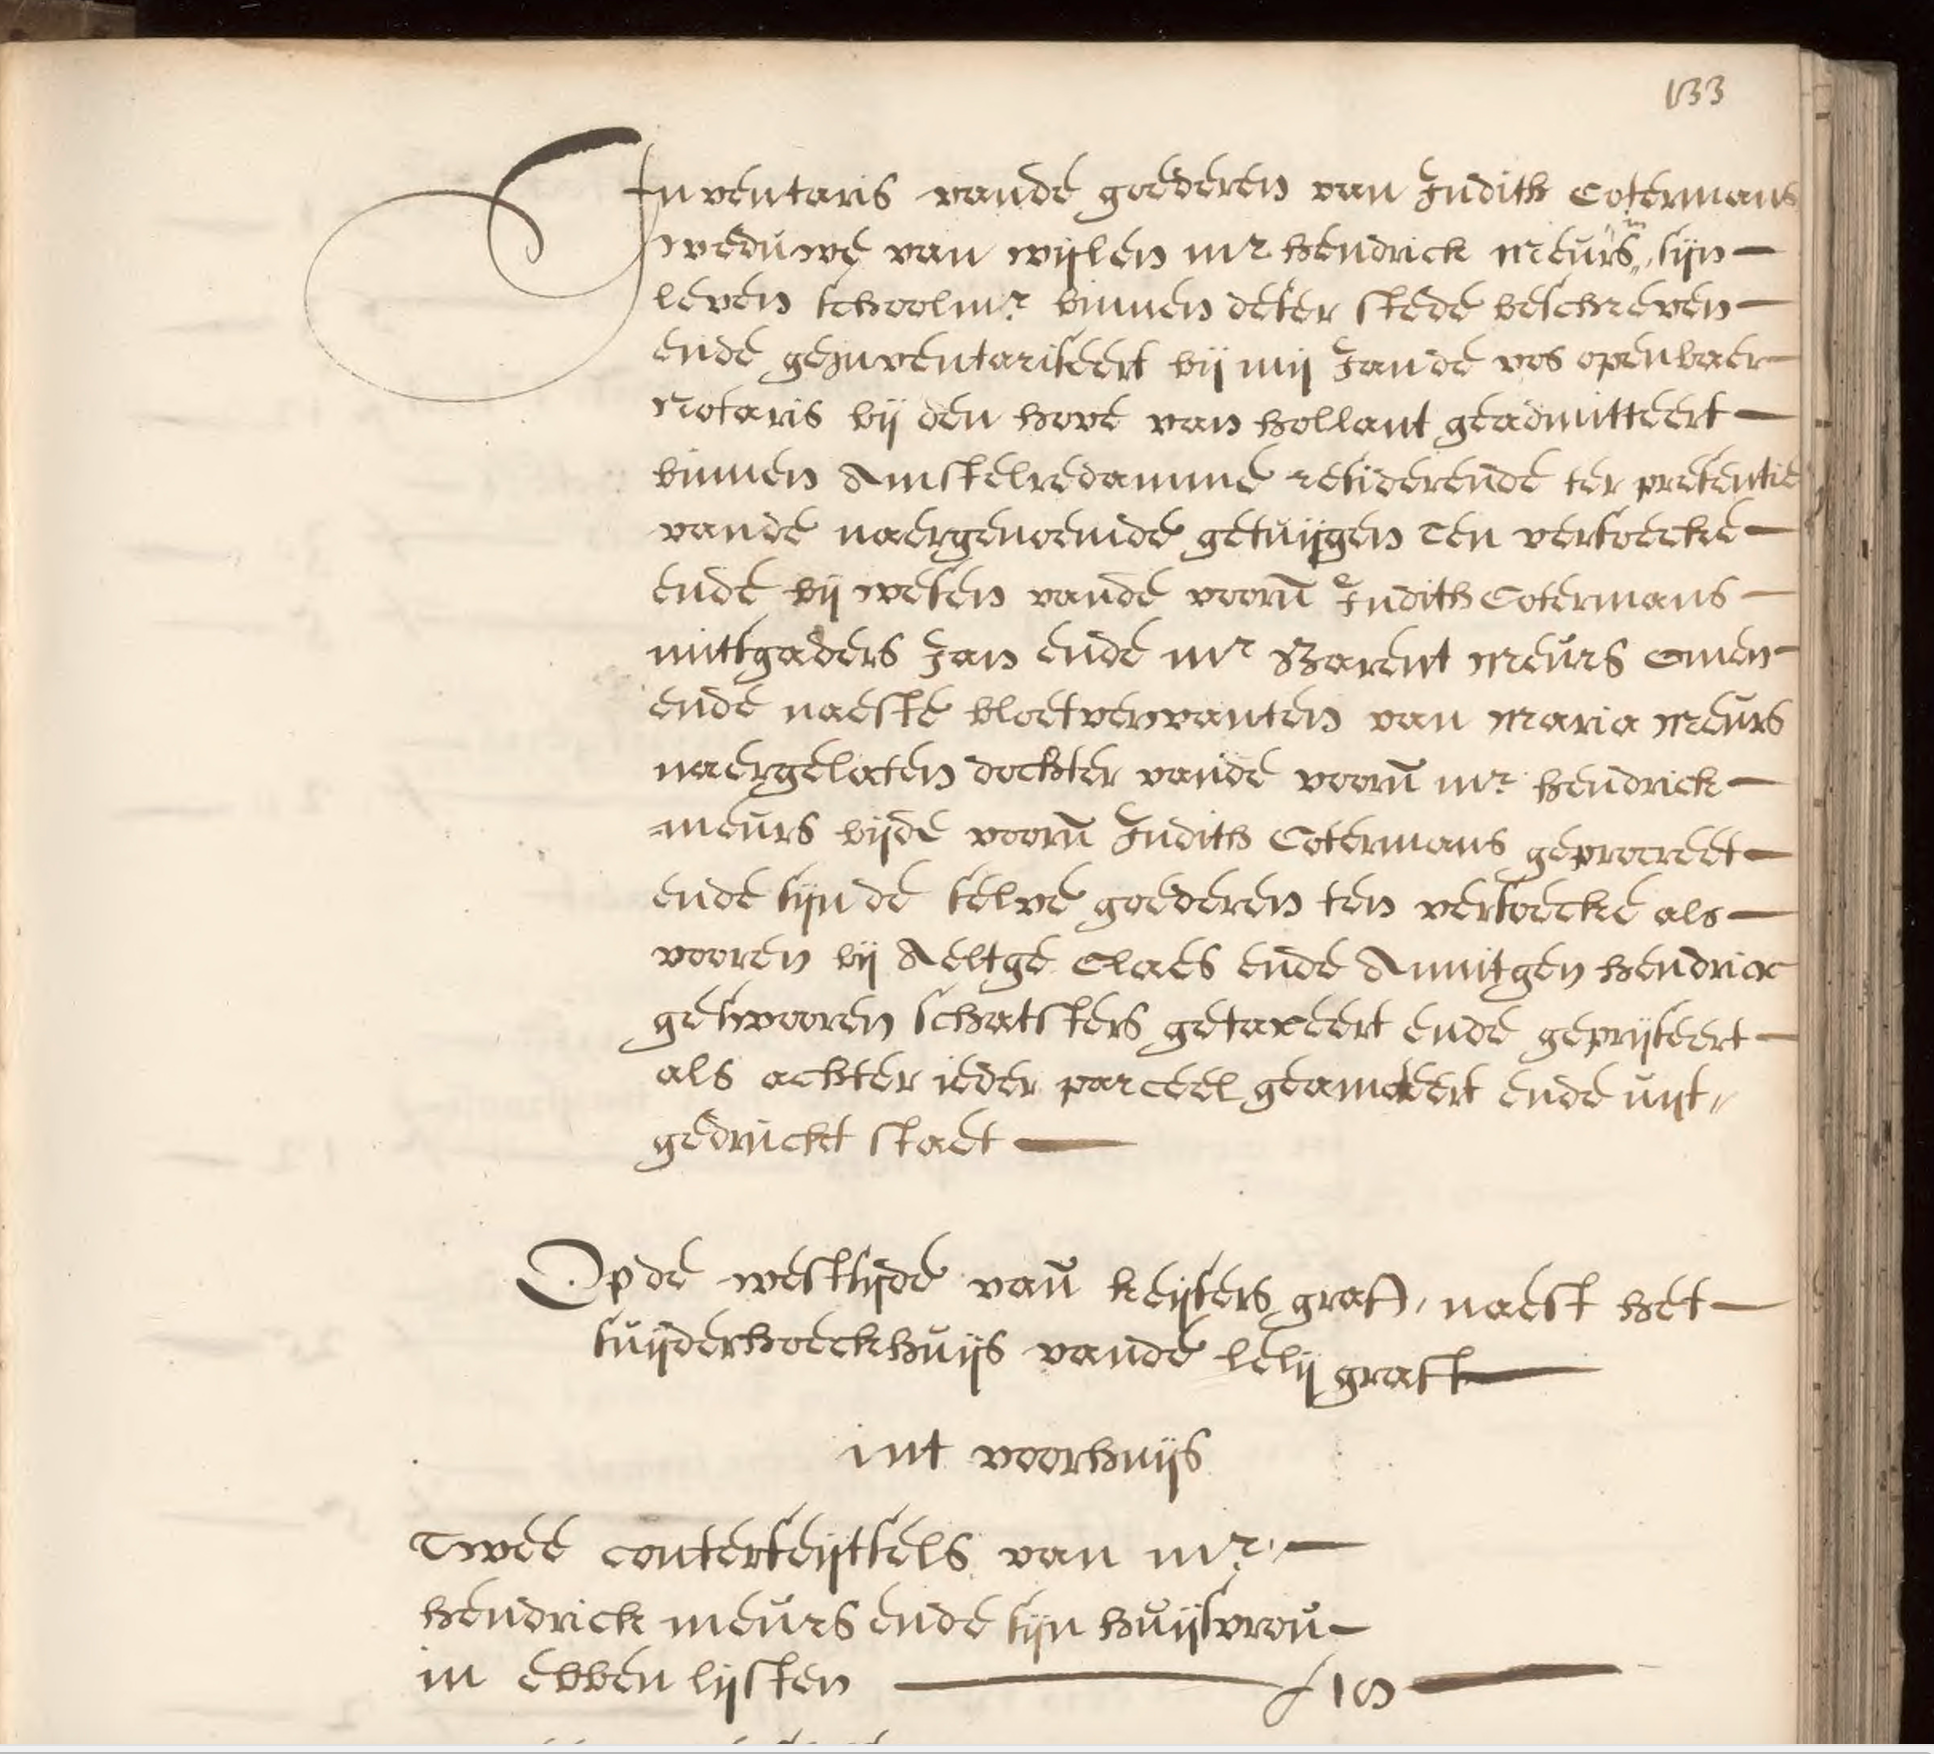 133
Inventaris vande goederen van Judith Cotermans
weduwe van wijlen mr hendrick Meurs, in sijn
leven schoolmr binnen deser stede beschreven
ende geinventariseert bij mij Jan de vos openbaer
Notaris bij den hove van hollant geadmitteert
binnen Amstelredamme residerende ter presentie
vande naergenoemde getuijgen Ten versoecke
ende bij wesen vande voorn Judith Cotermans
mitsgaders Jan ende mr Barent Meurs omen
ende naeste bloetverwanten van Maria Meurs
naergelaten dochter vande voorn mr hendrick
meurs bijde voorn Judith Cotermans geprocreet
ende sijn de selve goederen ten versoecke als
vooren bij Aeltge Claes ende Annitgen hendricx
geswooren schatsters getaxeert ende geprijseert
als achter ieder parceel geannoteert ende uijt„
gedruckt staet
Opde westsijde vañ keijsers graft, naest het
suijderhoeckhuijs vande lelij graft
int voorhuijs
Twee conterfeijtsels van mr
hendrick meurs ende sijn huijsvrou
in ebben lijsten